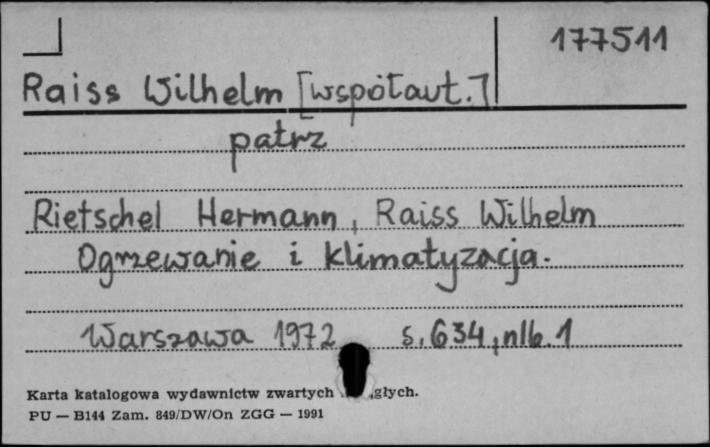 177511
Raiss Wilhelm [współaut.]
patrz
Rietschel Hermann, Raiss Wilhelm
Ogrzewanie i klimatyzacja.
Warszawa 1972 s. 634, nlb. 1
Karta katalogowa wydawnictw zwartych
PU — B144 Zam. 849/DW/On ZGG — 1991